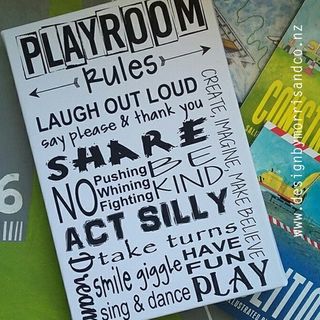 PLAYROOM
Rules
LAUGH OUT LOUD
say please & thank you
SHARE
NO Pushing Whining Fighting
BE KIND
CREATE, IMAGINE, MAKE BELIEVE
ACT SILLY
Dream
take turns
smile giggle
sing & dance
HAVE FUN
PLAY
www.designbymorrisandco.nz
6